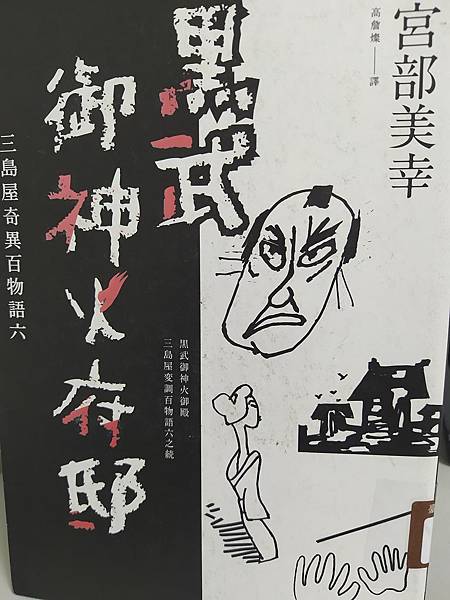 宮部美幸
高詹燦——譯
黑武
御神火府邸
三島屋奇異百物語六
黒武御神火御殿
三島屋変調百物語六之続